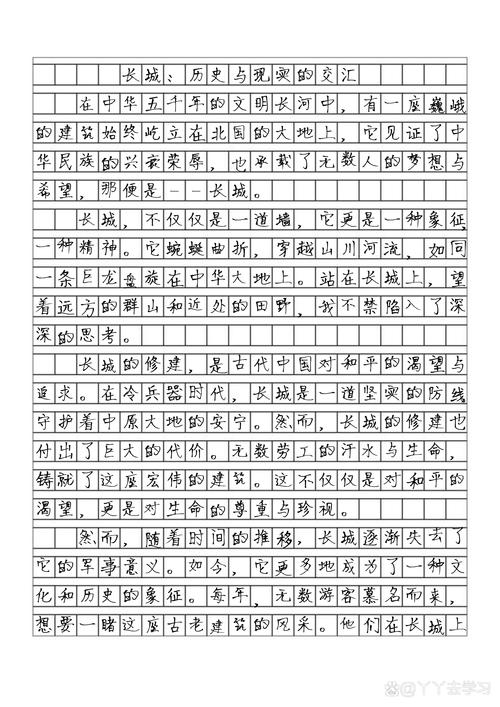 长城：历史与现实的交汇
在中华五千年的文明长河中，有一座巍峨
的建筑始终屹立在北国的大地上，它见证了中
华民族的兴衰荣辱，也承载了无数人的梦想与
希望，那便是——长城。
长城，不仅仅是一道墙，它更是一种象征，
一种精神。它蜿蜒曲折，穿越山川河流，如同
一条巨龙盘旋在中华大地上。站在长城上，望
着远方的群山和近处的田野，我不禁陷入了深
深的思考。
长城的修建，是古代中国对和平的渴望与
追求。在冷兵器时代，长城是一道坚实的防线
守护着中原大地的安宁。然而，长城的修建也
付出了巨大的代价。无数劳工的汗水与生命，
铸就了这座宏伟的建筑。这不仅仅是对和平的
渴望，更是对生命的尊重与珍视。
然而，随着时间的推移，长城逐渐失去了
它的军事意义。如今，它更多地成为了一种文
化和历史的象征。每年，无数游客慕名而来，
想要一睹这座古老建筑的风采。他们在长城上
@丫丫去学习